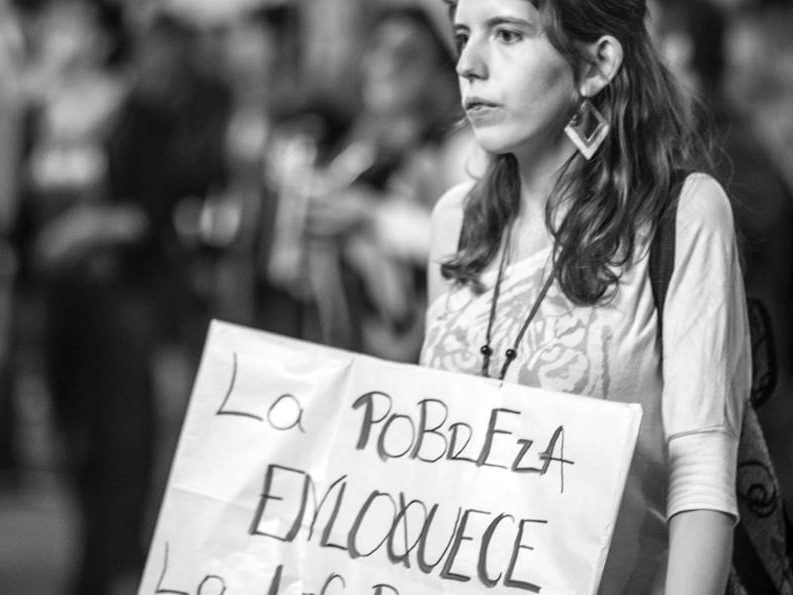 La POBREZA
ENLOQUECE
La